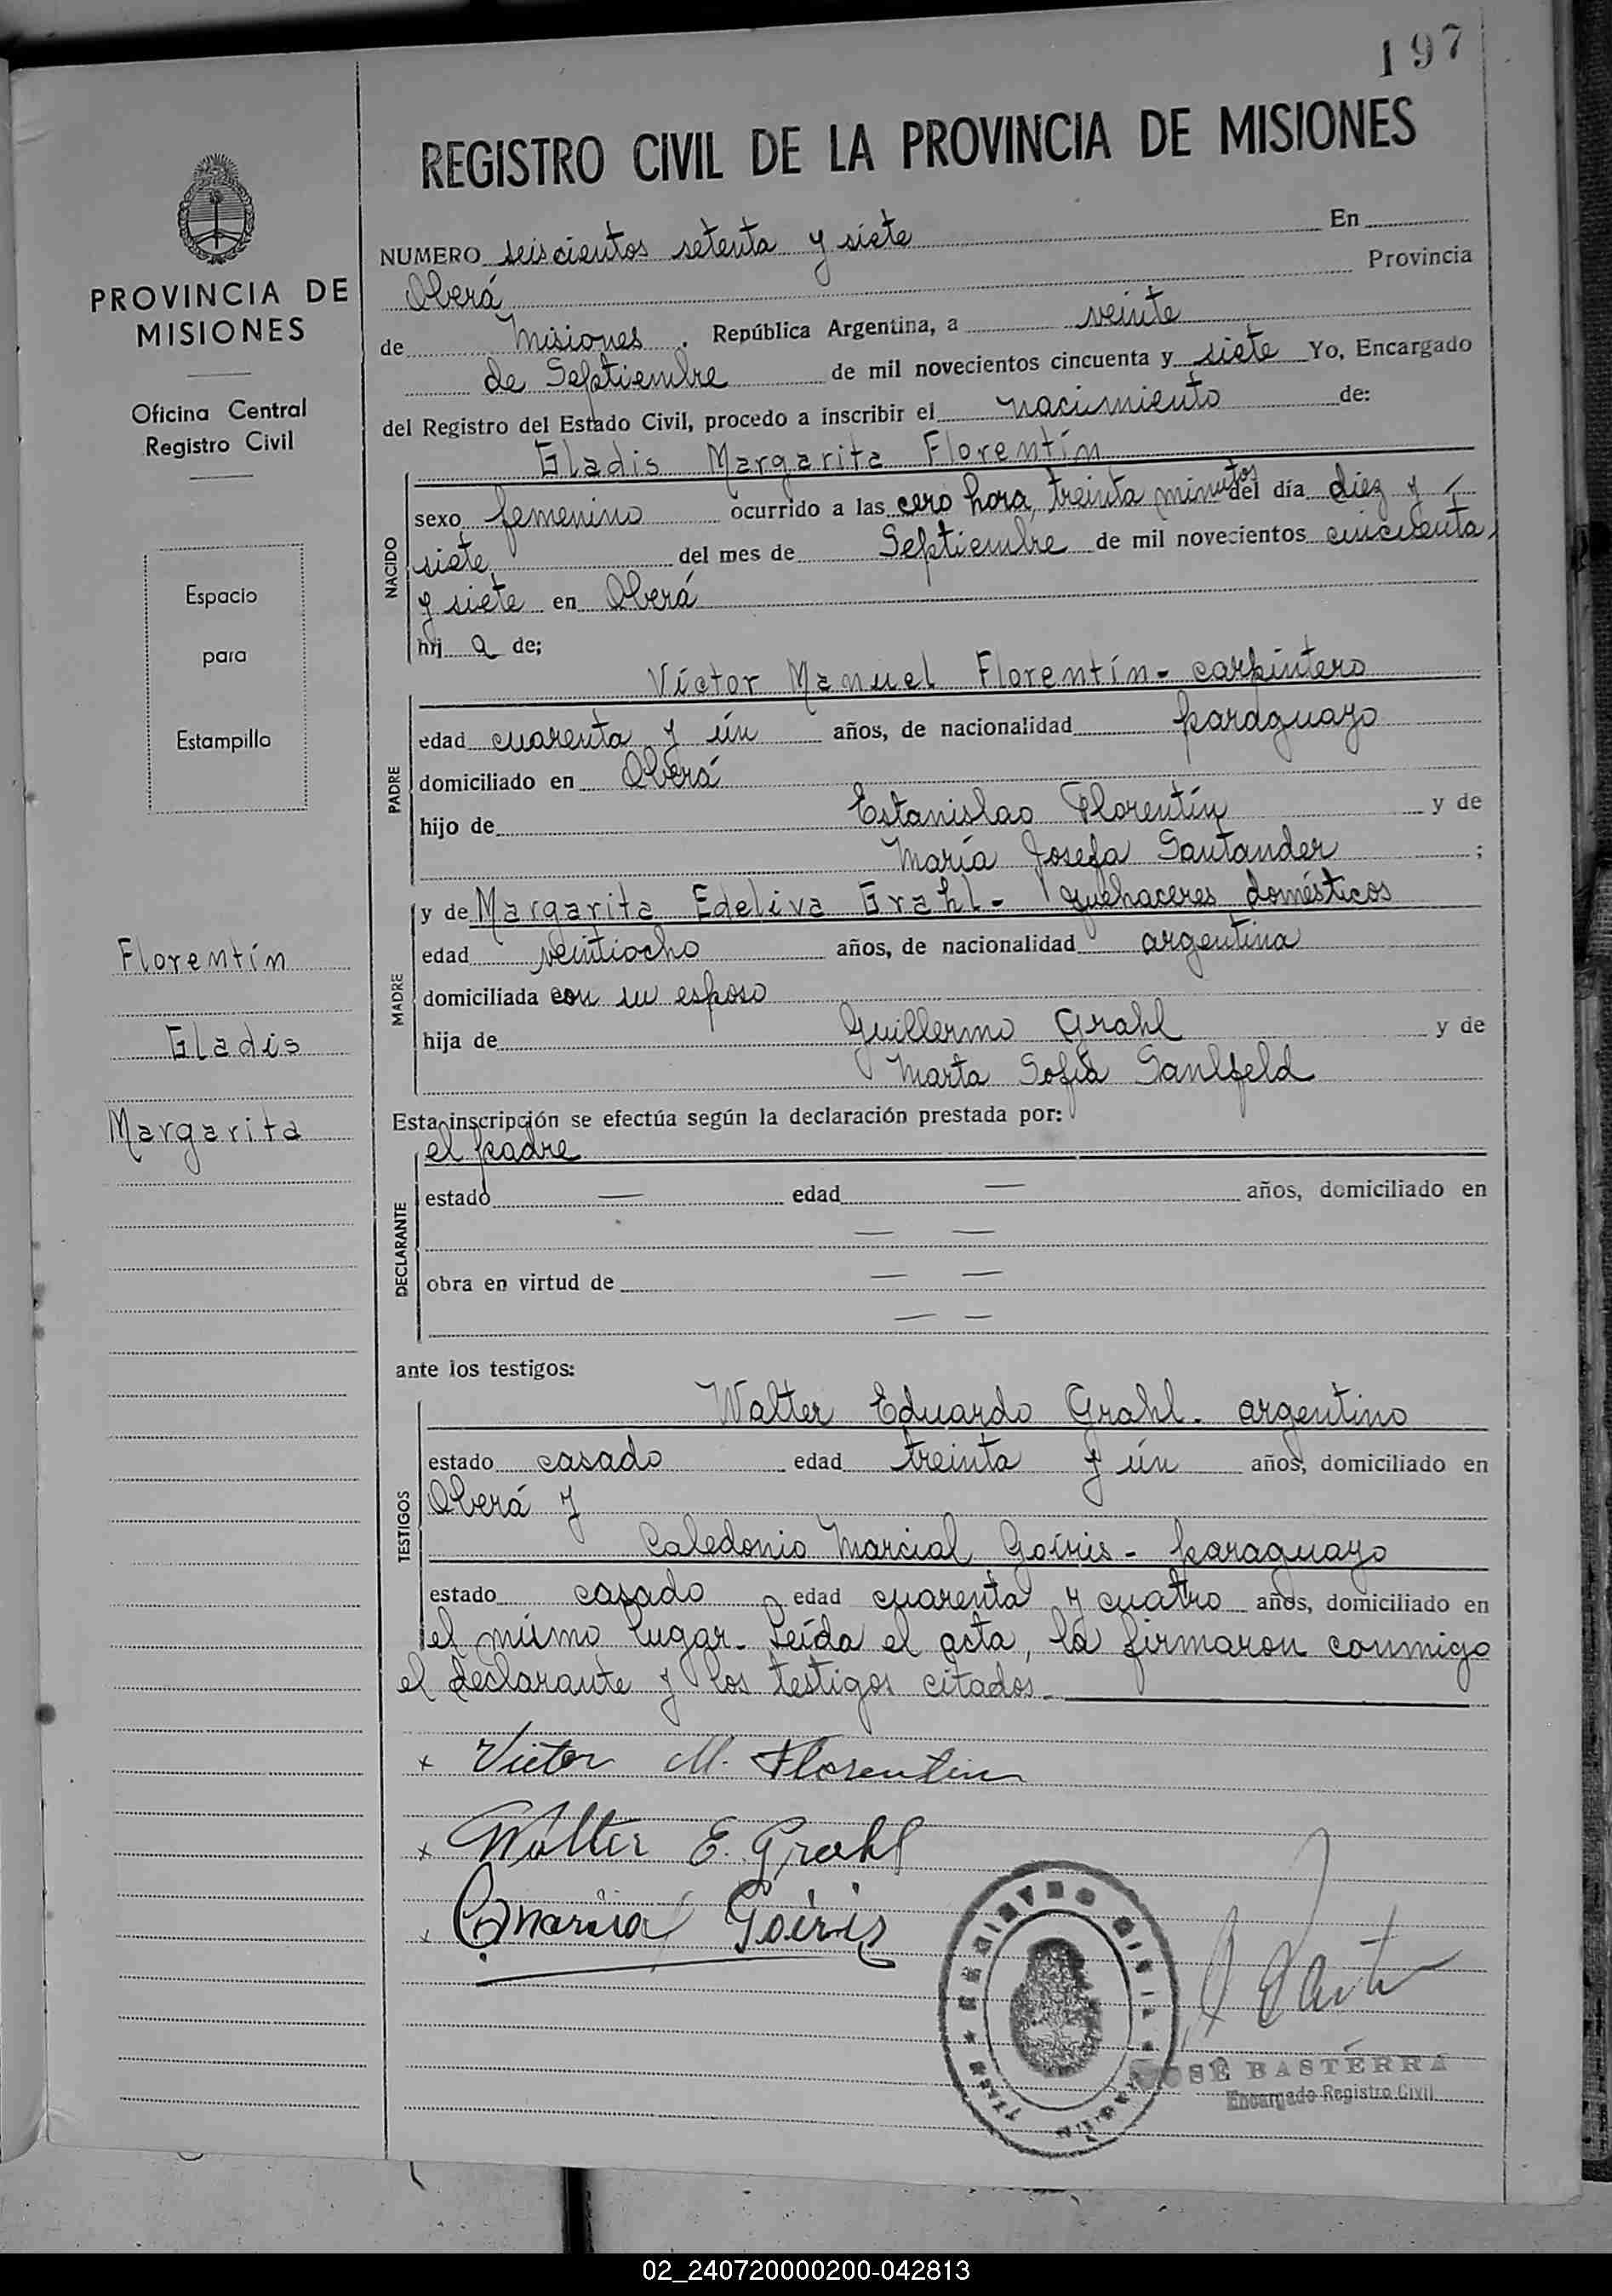 197
REGISTRO CIVIL DE LA PROVINCIA DE MISIONES
PROVINCIA DE
MISIONES
Oficina Central
Registro Civil
Espacio
para
Estampilla
Florentín
Gladis
Margarita
NUMERO seiscientos setenta y siete En
Oberá Provincia
de Misiones. República Argentina, a veinte
de Septiembre de mil novecientos cincuenta y siete Yo, Encargado
del Registro del Estado Civil, procedo a inscribir el nacimiento de:
Gladis Margarita Florentín
NACIDO
sexo femenino ocurrido a las cero hora, treinta minutos del día diez y
siete del mes de Septiembre de mil novecientos cincuenta
y siete en Oberá
hij a de;
Víctor Manuel Florentín - carpintero
PADRE
edad cuarenta y ún años, de nacionalidad paraguayo
domiciliado en Oberá
hijo de Estanislao Florentín y de
María Josefa Santander ;
MADRE
y de Margarita Edeliva Grahl - quehaceres domésticos
edad veintiocho años, de nacionalidad argentina
domiciliada con su esposo
hija de Guillermo Grahl y de
Marta Sofía Saulfeld
Esta inscripción se efectúa según la declaración prestada por:
el padre
DECLARANTE
estado — edad — años, domiciliado en
— —
obra en virtud de — —
— —
ante los testigos:
TESTIGOS
Walter Eduardo Grahl - argentino
estado casado edad treinta y ún años, domiciliado en
Oberá y
Caledonio Marcial Goíris - paraguayo
estado casado edad cuarenta y cuatro años, domiciliado en
el mismo lugar. Leída el acta, la firmaron conmigo
el declarante y los testigos citados.
x Victor M. Florentin
x Walter E. Grahl
x C Marcial Goiris
JOSÉ BASTERRA
Encargado Registro Civil
02_240720000200-042813